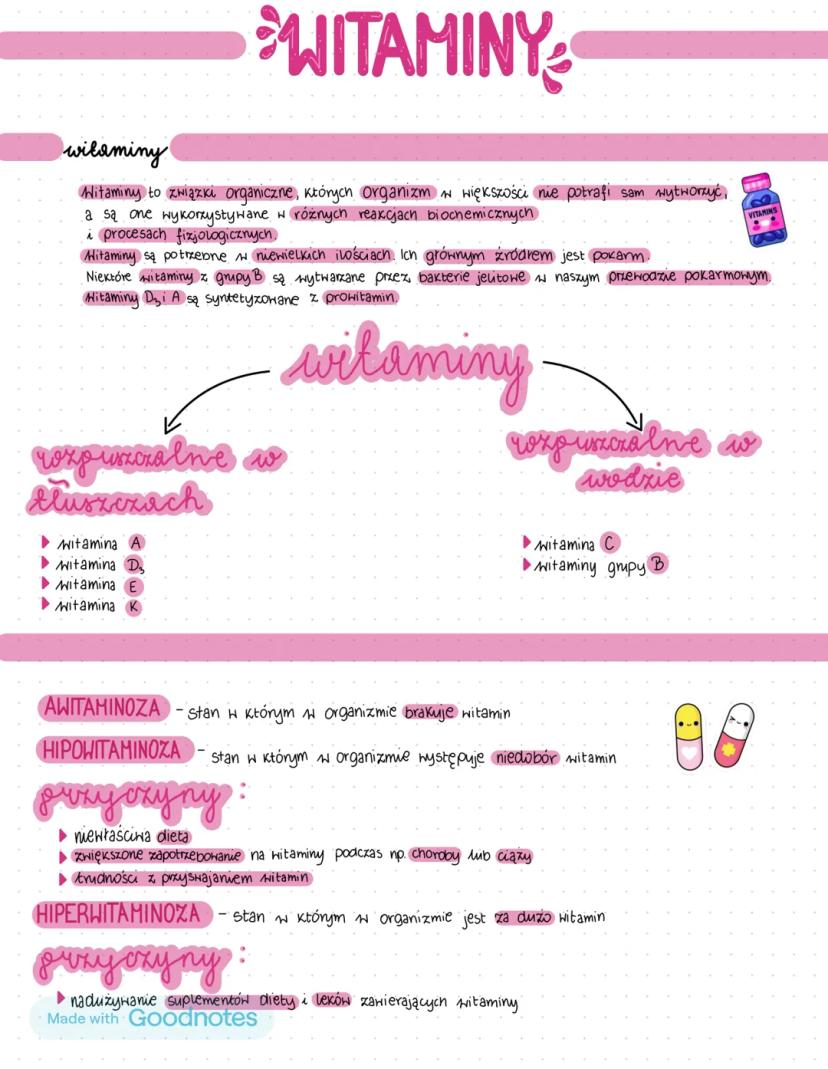 WITAMINY
witaminy
Witaminy to związki organiczne, których organizm w większości nie potrafi sam wytworzyć,
a są one wykorzystywane w różnych reakcjach biochemicznych
i procesach fizjologicznych.
VITAMINS
Witaminy są potrzebne w niewielkich ilościach. Ich głównym źródłem jest pokarm.
Niektóre witaminy z grupy B są wytwarzane przez bakterie jelitowe w naszym przewodzie pokarmowym.
Witaminy D3 i A są syntetyzowane z prowitamin.
witaminy
rozpuszczalne w
tłuszczach
witamina A
witamina D3
witamina E
witamina K
rozpuszczalne w
wodzie
witamina C
witaminy grupy B
AWITAMINOZA - stan w którym w organizmie brakuje witamin
HIPOWITAMINOZA - stan w którym w organizmie występuje niedobór witamin
przyczyny:
niewłaściwa dieta
zwiększone zapotrzebowanie na witaminy podczas np. choroby lub ciąży
trudności z przyswajaniem witamin
HIPERWITAMINOZA - stan w którym w organizmie jest za dużo witamin
przyczyny:
nadużywanie suplementów diety i leków zawierających witaminy
Made with Goodnotes